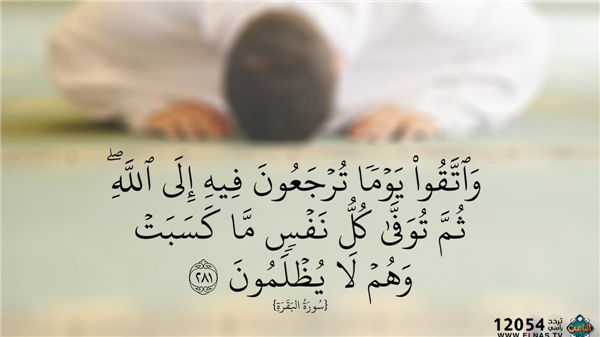 وَٱتَّقُوا۟ يَوْمًۭا تُرْجَعُونَ فِيهِ إِلَى ٱللَّهِ ۖ
ثُمَّ تُوَفَّىٰ كُلُّ نَفْسٍۢ مَّا كَسَبَتْ
وَهُمْ لَا يُظْلَمُونَ ٢٨١
{سُورَةُ البَقَرَةِ}
12054 تردد رأسي
الناس
WWW.ELNAS.TV